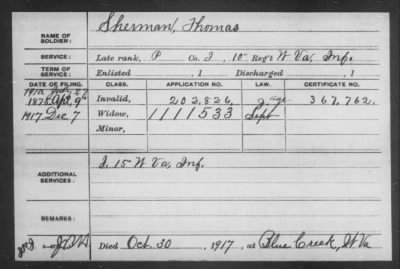 NAME OF SOLDIER: Sherman, Thomas
SERVICE: Late rank, P Co. I, 10 Reg't W Va, Inf.
TERM OF SERVICE: Enlisted , 1 Discharged , 1
DATE OF FILING. CLASS. APPLICATION NO. LAW. CERTIFICATE NO.
1912
1875 Apl, 9 Invalid, 202,826 367,762.
1917 Dec 7 Widow, 1111533 Sept
Minor,
ADDITIONAL SERVICES: I. 15 W Va, Inf.
REMARKS:
Died Oct 30 1917, at Blue Creek, W. Va